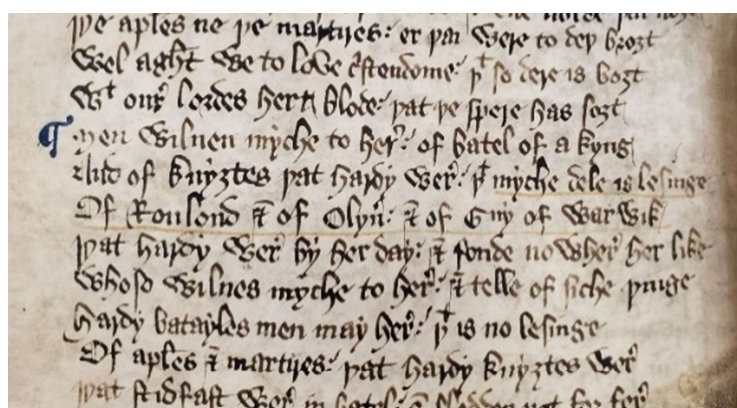 þe aples ne þe martires: er þai were to deþ brozt
Wel aght we to love c̄stendome: þᵗ so dere is bozt
Wᵗ our̉ lordes hert blode: þat þe spere has sozt
¶ Men wilnen myche to her̉: of batel of a kyng
of knyztes þat hardy wer̉: þᵗ myche dele is lesinge
Of Roulond & of Olyủ: & of Guy of Warwik
þat hardy wer̉ by her day: & fonde nowher̉ her like
Whoso wilnes myche to her̉: & telle of siche þinge
Hardy batayles men may her̉: þᵗ is no lesinge
Of aples & martires: þat hardy knyztes wer̉
þat stidfast wer̉ in batel: & fledden not for fer̉